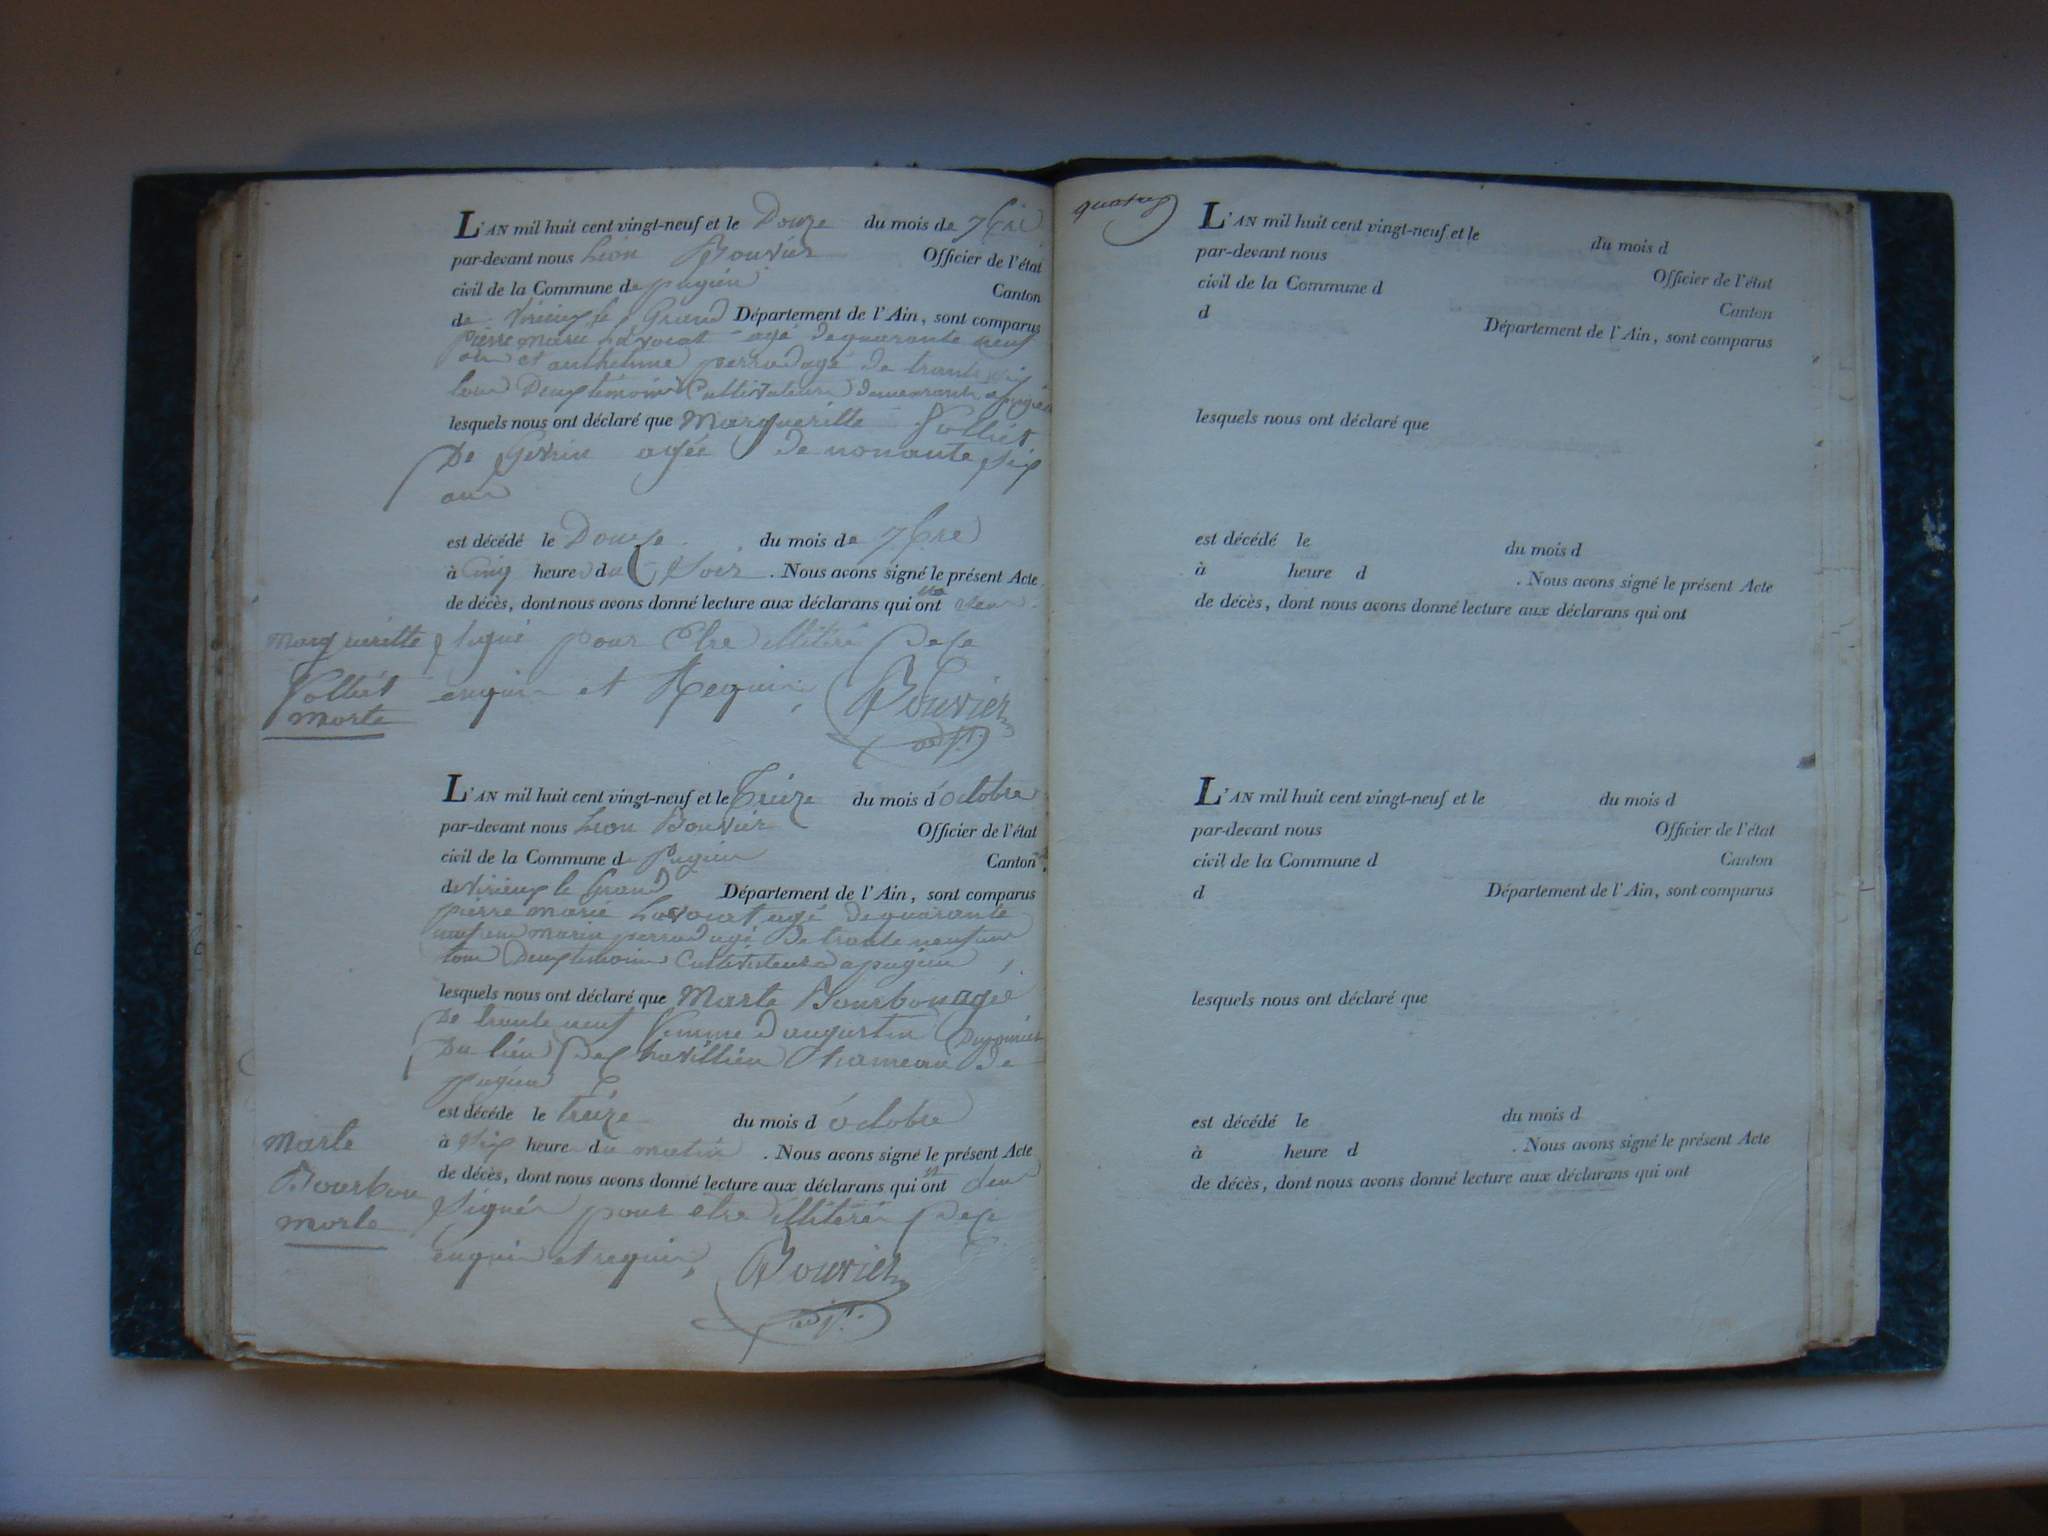 L'AN mil huit cent vingt-neuf et le Douze du mois de 7bre
par-devant nous Léon Bouvier Officier de l'état
civil de la Commune de pugieu Canton
de Virieux le Grand Département de l'Ain, sont comparus
pierre marie Lavocat agé de quarante neuf
ans et anthelme perrod agé de trante
tous Deux témoins Cultivateurs demeurants a pugieu
lesquels nous ont déclaré que Margueritte Volliét
De agée de nonante six
ans
est décédé le Douze du mois de 7bre
à Cinq heure du Soir. Nous avons signé le présent Acte
de décès, dont nous avons donné lecture aux déclarans qui ont
signé pour Etre illitéré De Ce
enquis et Requis, Bouvier
adjt.
margueritte
Volliét
morte
L'AN mil huit cent vingt-neuf et le Treize du mois d'octobre
par-devant nous Léon Bouvier Officier de l'état
civil de la Commune de Pugieu Canton
de Virieux le Grand Département de l'Ain, sont comparus
pierre marie Lavocat agé de quarante
neuf ans marin perrod agé de trante neuf ans
tous Deux témoins Cultivateurs a pugieu,
lesquels nous ont déclaré que Marte Bourbon agée
De trante neuf femme d'augustin
Du lieu De Chavillieu hameau de
pugieu
est décédé le treize du mois d'octobre
à Six heure du matin. Nous avons signé le présent Acte
de décès, dont nous avons donné lecture aux déclarans qui ont
Signés pour etre illitérés De Ce
enquis et requis, Bouvier
adjt.
Marte
Bourbon
morte
L'AN mil huit cent vingt-neuf et le du mois d
par-devant nous Officier de l'état
civil de la Commune d Canton
d Département de l'Ain, sont comparus
lesquels nous ont déclaré que
est décédé le du mois d
à heure d . Nous avons signé le présent Acte
de décès, dont nous avons donné lecture aux déclarans qui ont
L'AN mil huit cent vingt-neuf et le du mois d
par-devant nous Officier de l'état
civil de la Commune d Canton
d Département de l'Ain, sont comparus
lesquels nous ont déclaré que
est décédé le du mois d
à heure d . Nous avons signé le présent Acte
de décès, dont nous avons donné lecture aux déclarans qui ont